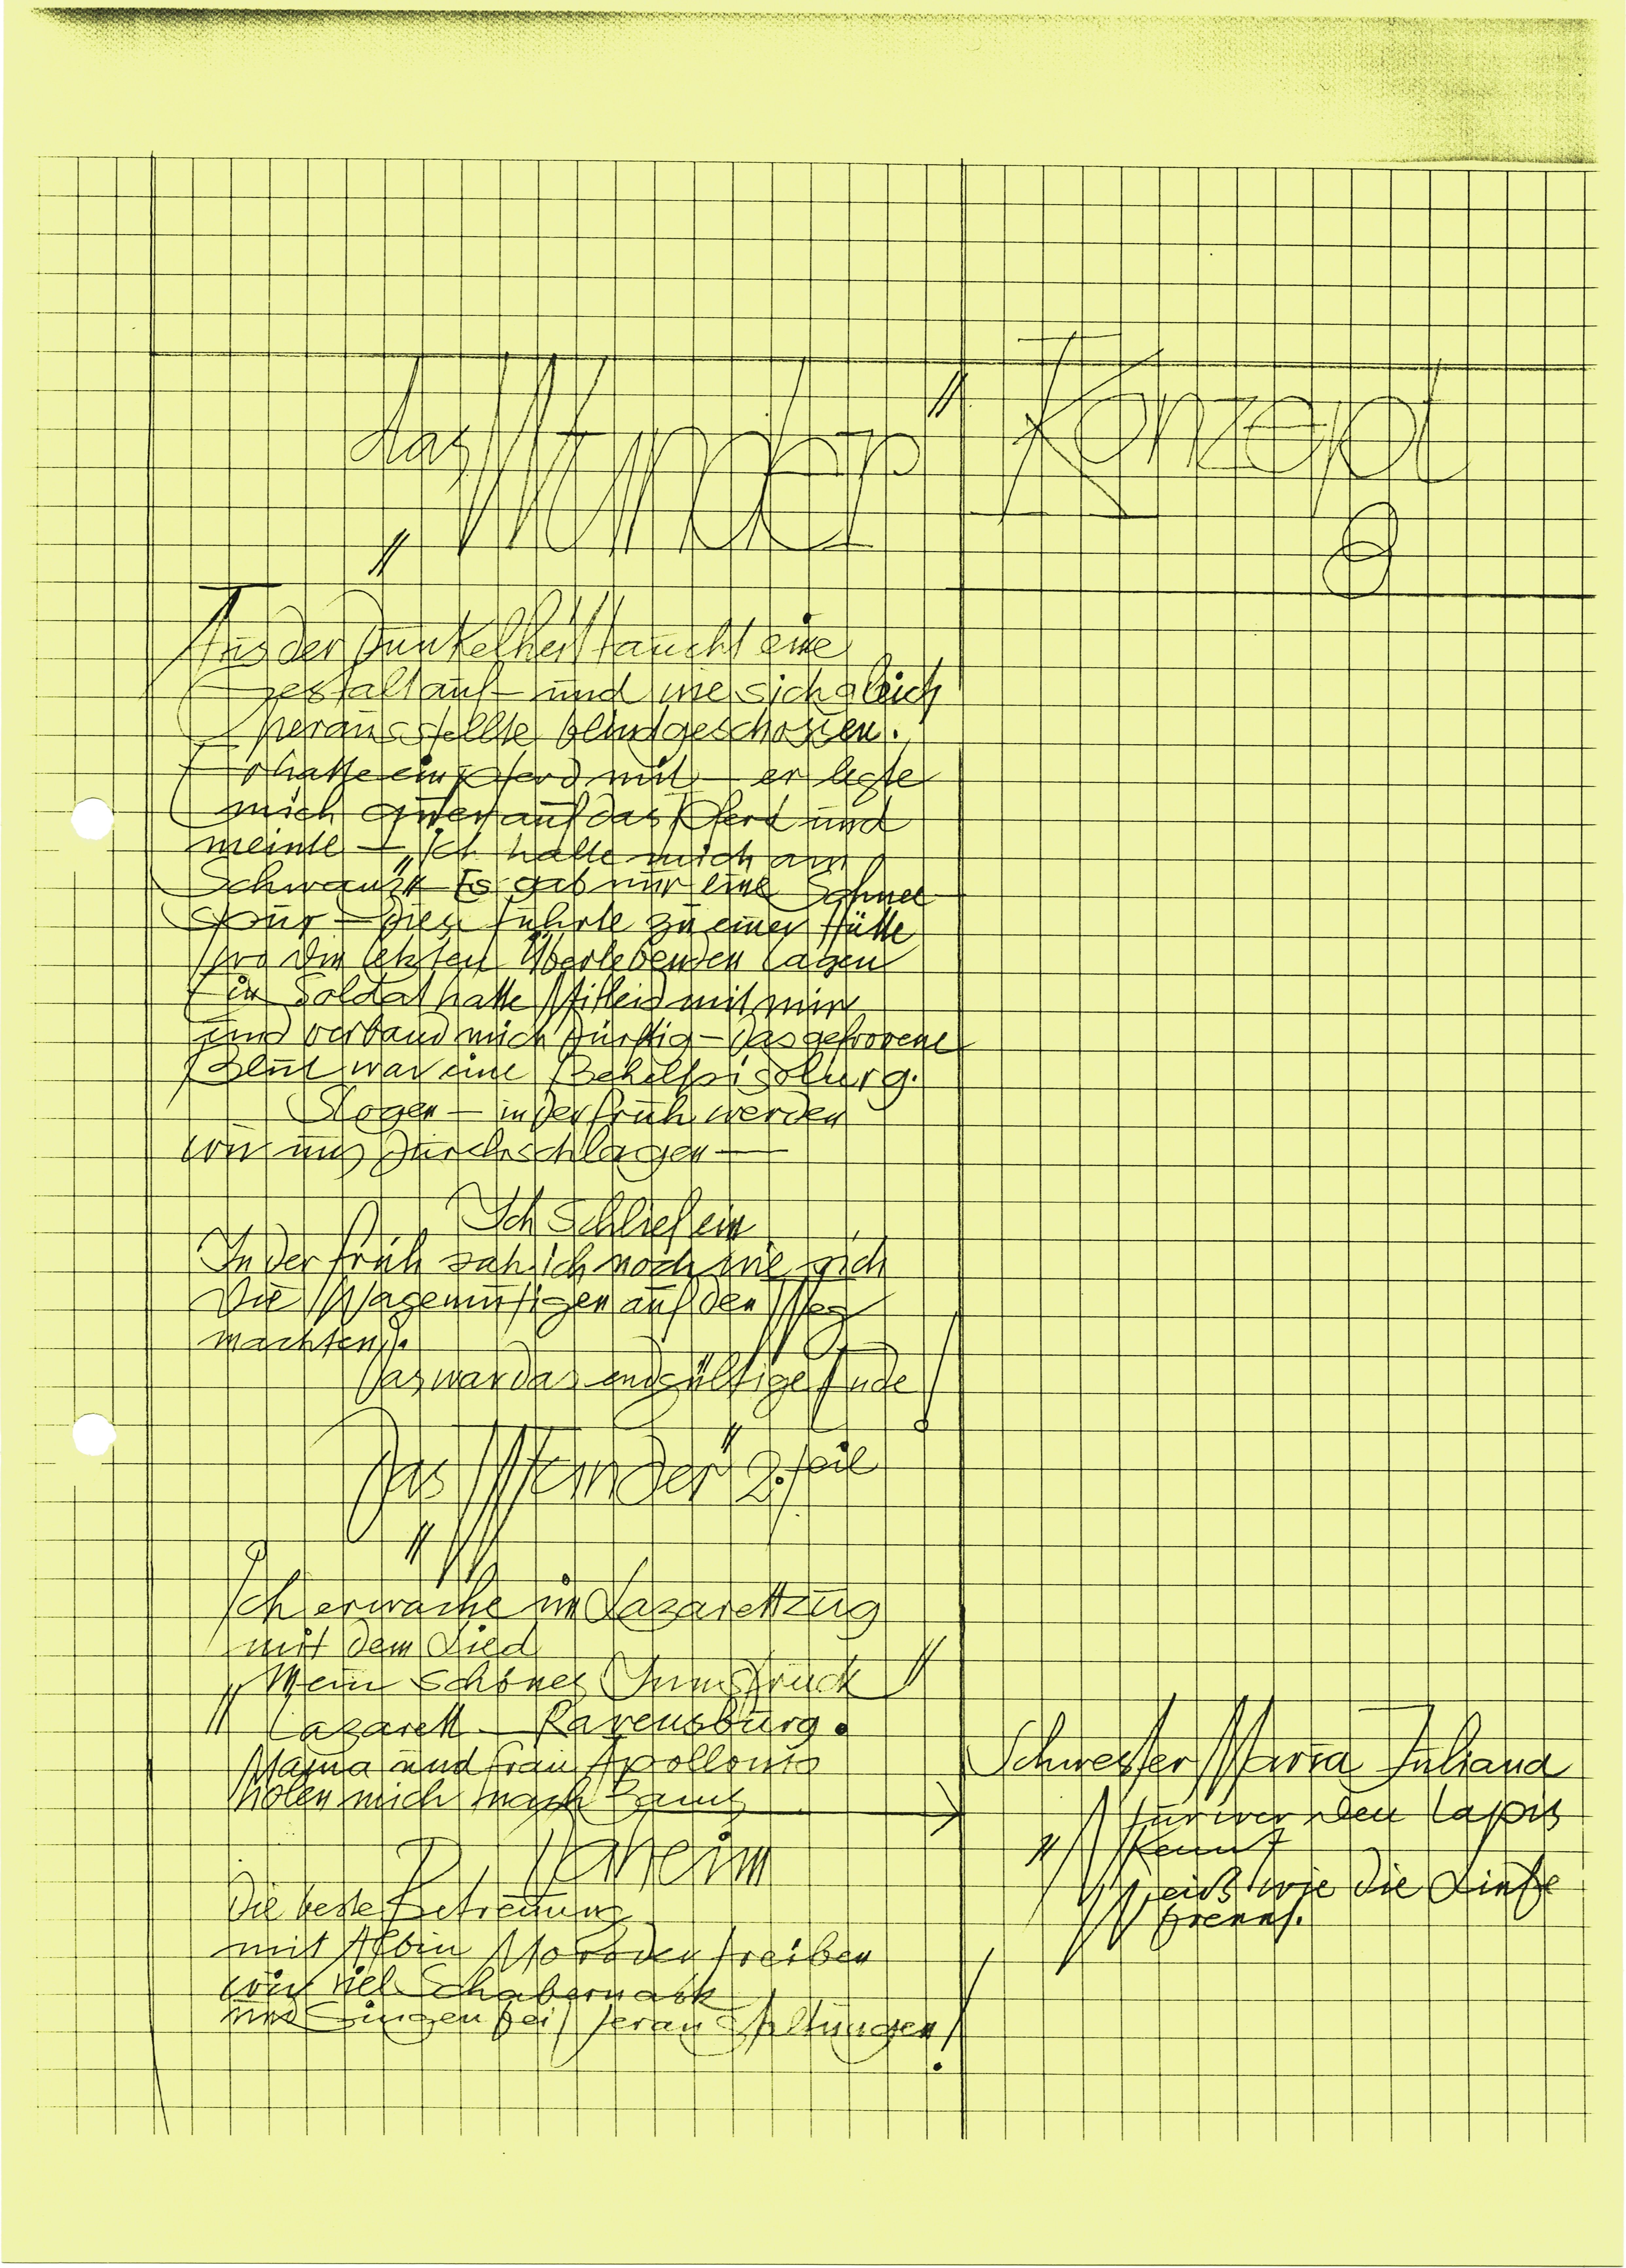 das „Wunder" Konzept
8
Aus der Dunkelheit taucht eine
Gestalt auf – und wie sich gleich
herausstellte blindgeschossen.
Er hatte ein Pferd mit – er legte
mich quer auf das Pferd und
meinte – „Ich halte mich am
Schwanz" Es gab nur eine Schnee-
spur – diese führte zu einer Hütte
wo die letzten Überlebenden lagen
Ein Soldat hatte Mitleid mit mir
und verband mich dürftig – das gefrorene
Blut war eine Behelfsisolurg.
Slogen – in der früh werden
wir uns durchschlagen —
Ich schlief ein
In der früh sah ich noch wie sich
die Wagemutigen auf den Weg
machten.
Das war das endgültige Ende!
Das „Wunder" 2. Teil
Ich erwache im Lazarettzug
mit dem Lied
„Mein schönes Innsbruck"
Lazarett – Ravensburg.
Mama und Frau Apollonio
holen mich nach Zams →
Daheim
Die beste Betreuung
mit Albin Moroder treiben
wir viel Schabernack
und Singen bei Veranstaltungen!
Schwester Maria Juliana
„Nur wer den Lapis
kennt
Weiß wie die Linse
brennt.